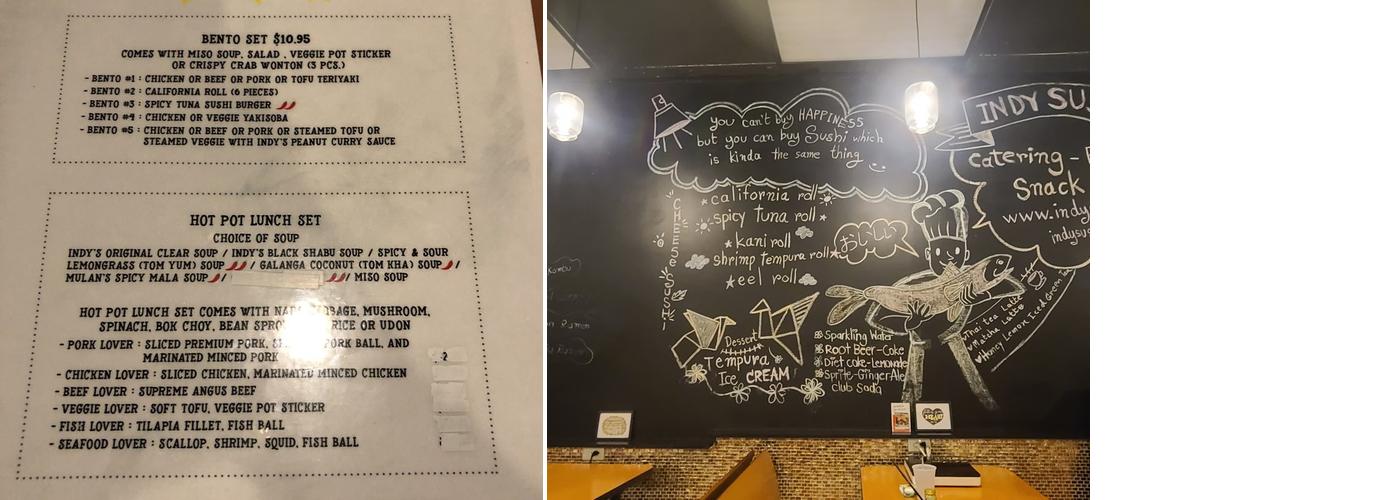 BENTO SET $10.95
COMES WITH MISO SOUP, SALAD , VEGGIE POT STICKER
OR CRISPY CRAB WONTON (3 PCS.)
- BENTO #1 : CHICKEN OR BEEF OR PORK OR TOFU TERIYAKI
- BENTO #2 : CALIFORNIA ROLL (6 PIECES)
- BENTO #3 : SPICY TUNA SUSHI BURGER
- BENTO #4 : CHICKEN OR VEGGIE YAKISOBA
- BENTO #5 : CHICKEN OR BEEF OR PORK OR STEAMED TOFU OR
STEAMED VEGGIE WITH INDY'S PEANUT CURRY SAUCE
HOT POT LUNCH SET
CHOICE OF SOUP
INDY'S ORIGINAL CLEAR SOUP / INDY'S BLACK SHABU SOUP / SPICY & SOUR
LEMONGRASS (TOM YUM) SOUP / GALANGA COCONUT (TOM KHA) SOUP /
MULAN'S SPICY MALA SOUP / / MISO SOUP
HOT POT LUNCH SET COMES WITH CABBAGE, MUSHROOM,
SPINACH, BOK CHOY, BEAN RICE OR UDON
- PORK LOVER : SLICED PREMIUM PORK, PORK BALL, AND
MARINATED MINCED PORK
- CHICKEN LOVER : SLICED CHICKEN, MARINATED MINCED CHICKEN
- BEEF LOVER : SUPREME ANGUS BEEF
- VEGGIE LOVER : SOFT TOFU, VEGGIE POT STICKER
- FISH LOVER : TILAPIA FILLET, FISH BALL
- SEAFOOD LOVER : SCALLOP, SHRIMP, SQUID, FISH BALL
you can't buy HAPPINESS
but you can buy Sushi which
is kinda the same thing
CHEESE SUSHI
california roll
spicy tuna roll
kani roll
shrimp tempura roll
eel roll
おいしい
Dessert
Tempura
Ice CREAM
Sparkling Water
Root Beer-Coke
Diet coke-Lemonade
Sprite-Ginger Ale
club Soda
INDY SU
catering -
Snack
www.indy
indysu
Thai tea Latte
Matcha Latte
Honey Lemon Iced Green Tea